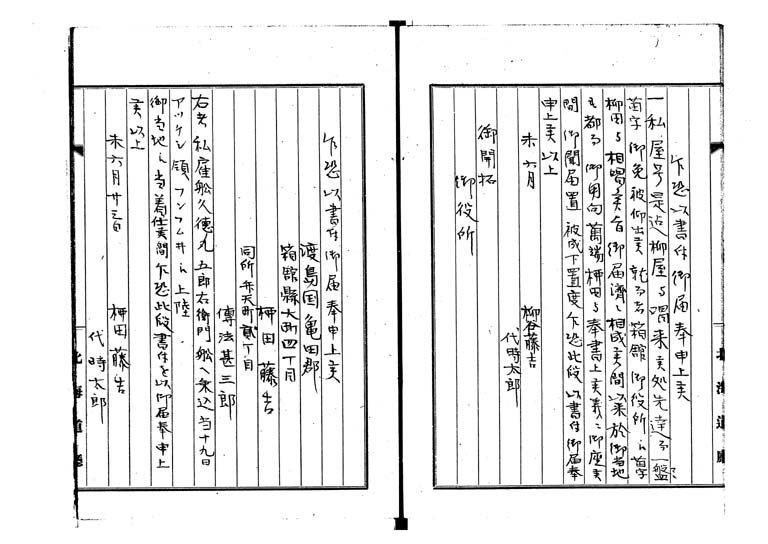 乍恐以書付御届奉申上候
一私屋号是迠柳屋ト唱来候処先達而一般
苗字御免被仰出候就而者箱館御役所ニ而苗字
柳田ト相唱候旨御届済ニ相成候間以来於御当地
モ都而御用向萬端柳田ト奉書上候義ニ御座候
間御聞届置被成下置度乍恐此段以書付御届奉
申上候以上
未六月
柳谷藤吉
代時太郎
御開拓
御役所
乍恐以書付御届奉申上候
渡島国亀田郡
箱館縣大町四丁目
柳田藤吉
同所弁天町貳丁目
傳法甚三郎
右者私雇舩久徳丸五郎右衛門舩ヘ乗込当十九日
アツケシ領フンフムイニ上陸
御当地ニ当着仕候間乍恐此段書付を以御届奉申上
候以上
未六月廿三日
柳田藤吉
代時太郎
北海道廳
北海道廳